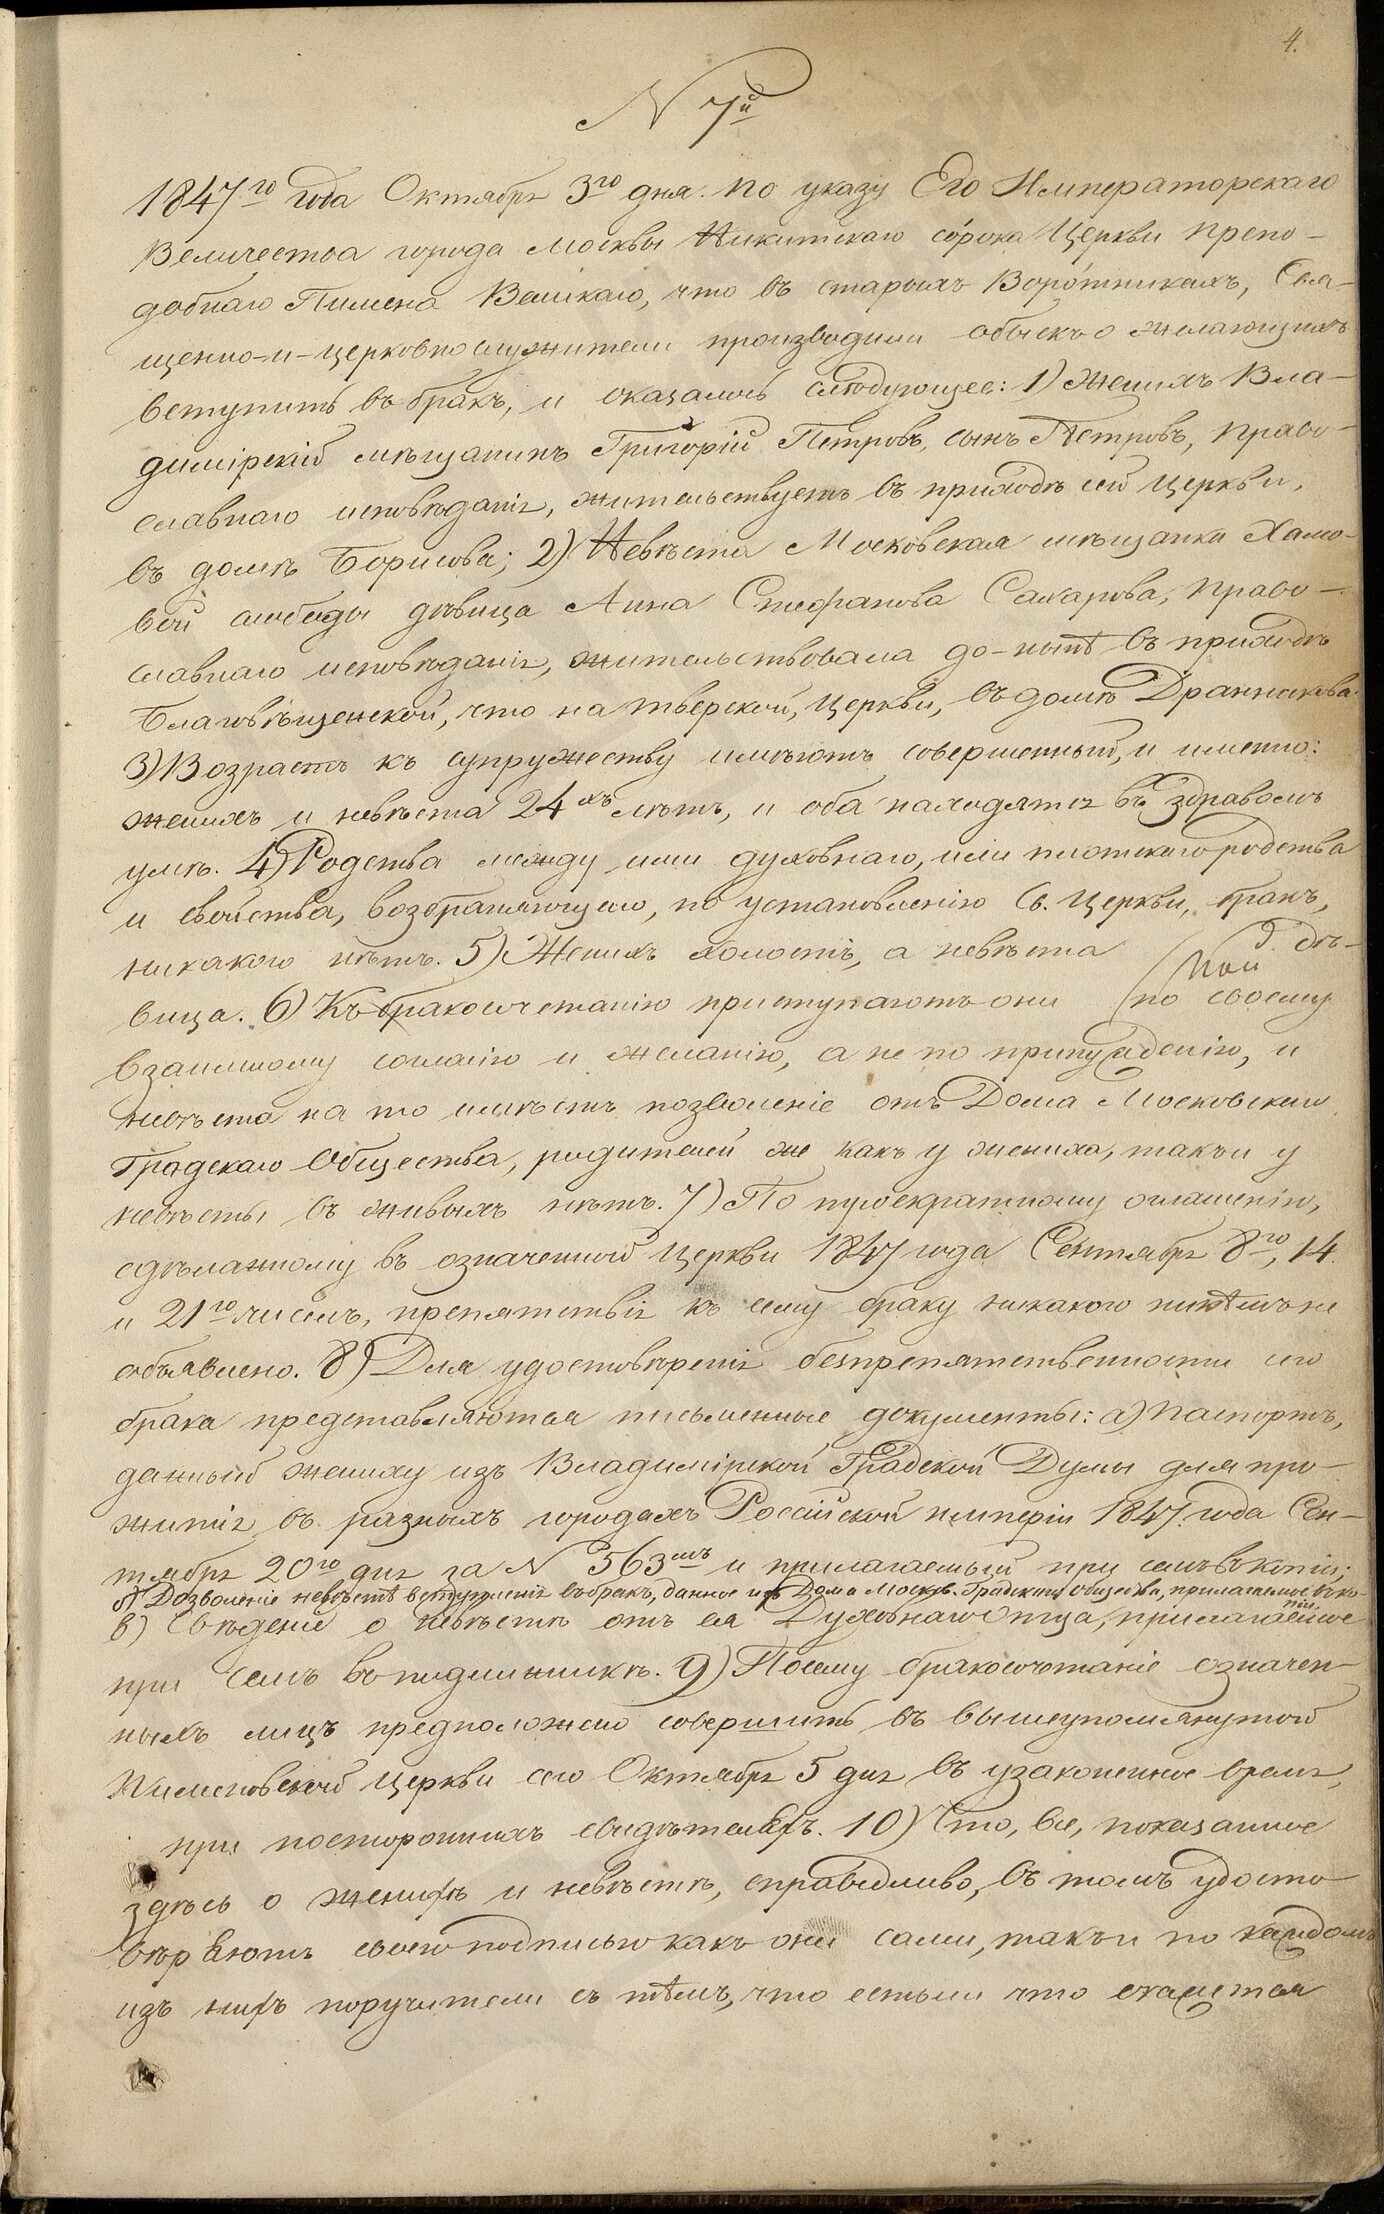 4.
N 7й
1847го года Октября 3го дня. По указу Его Императорскаго
Величества города Москвы Никитскаго со́рока Церкви Препо-
добнаго Пимена Великаго, что въ старыхъ Воро́тникахъ, Свя-
щенно-и-церковнослужители производили обыскъ о желающихъ
вступить въ бракъ, и оказалось слѣдующее: 1) Женихъ Вла-
димірскій мѣщанинъ Григорій Петровъ, сынъ Петровъ, право-
славнаго исповѣданія, жительствуетъ въ приходѣ сей Церкви,
въ домѣ Борисова; 2) Невѣста Московская мѣщанка Хамо-
вой слободы дѣвица Анна Стефанова Сахарова, право-
славнаго исповѣданія, жительствовала до-нынѣ въ приходѣ
Благовѣщенской, что на тверской, Церкви, въ домѣ Дранчикова.
3) Возрастъ къ супружеству имѣютъ совершенный, и именно:
женихъ и невѣста 24хъ лѣтъ, и оба находятся въ здравомъ
умѣ. 4) Родства между ими духовнаго, или плотскаго родства
и свойства, возбраняющаго, по установленію Св. Церкви, бракъ,
никакого нѣтъ. 5) Женихъ холостъ, а невѣста дѣ-
вица. 6) Къ бракосочетанію приступаютъ они по своему
взаимному согласію и желанію, а не по принужденію, и
невѣста на то имѣетъ позволеніе отъ Дома Московскаго
Градскаго Общества, родителей же какъ у жениха, такъ и у
невѣсты въ живыхъ нѣтъ. 7) По троекратному оглашенію,
сдѣланному въ означенной Церкви 1847 года Сентября 8го, 14
и 21го чиселъ, препятствія къ сему браку никакого никѣмъ не
объявлено. 8) Для удостовѣренія безпрепятственности сего
брака представляются письменные документы: а) Паспортъ,
данный жениху изъ Владимірской Градской Думы для про-
житія въ разныхъ городахъ Россійской имперіи 1847 года Сен-
тября 20го дня за N 563мъ и прилагаемый при семъ въ копіи;
б) Дозволеніе невѣстѣ вступленія въ бракъ, данное изъ Дома Москов. Градскаго общества, прилагаемое въ ко-
піи.
в) Свѣденіе о невѣстѣ отъ ея Духовнаго Отца, прилагаемое
при семъ въ подлинникѣ. 9) Посему бракосочетаніе означен-
ныхъ лицъ предположено совершить въ вышеупомянутой
Пименовской Церкви сего Октября 5 дня въ узаконенное время,
при постороннихъ свидѣтеляхъ. 10) Что, все, показанное
здѣсь о женихѣ и невѣстѣ, справедливо, въ томъ удосто-
вѣряютъ своею подписью какъ они сами, такъ и по каждомъ
изъ нихъ поручители съ тѣмъ, что естьли что окажется